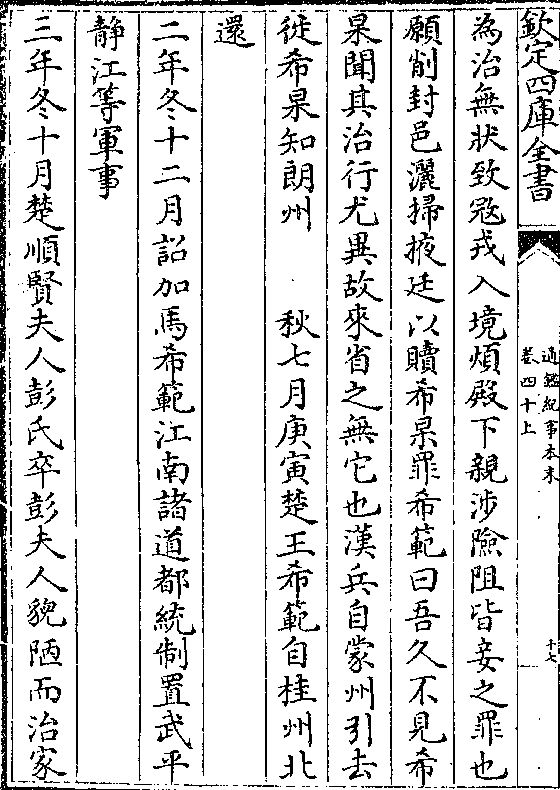 欽定四庫全書
通鑑紀事本末
卷四十上
十七
為治無狀致冦戎入境煩殿下親涉險阻皆妾之罪也
願削封邑灑掃掖廷以贖希杲罪希範曰吾久不見希
杲聞其治行尤異故來省之無它也漢兵自蒙州引去
徙希杲知朗州　秋七月庚寅楚王希範自桂州北
還
二年冬十二月詔加馬希範江南諸道都統制置武平
静江等軍事
三年冬十月楚順賢夫人彭氏卒彭夫人貌陋而治家